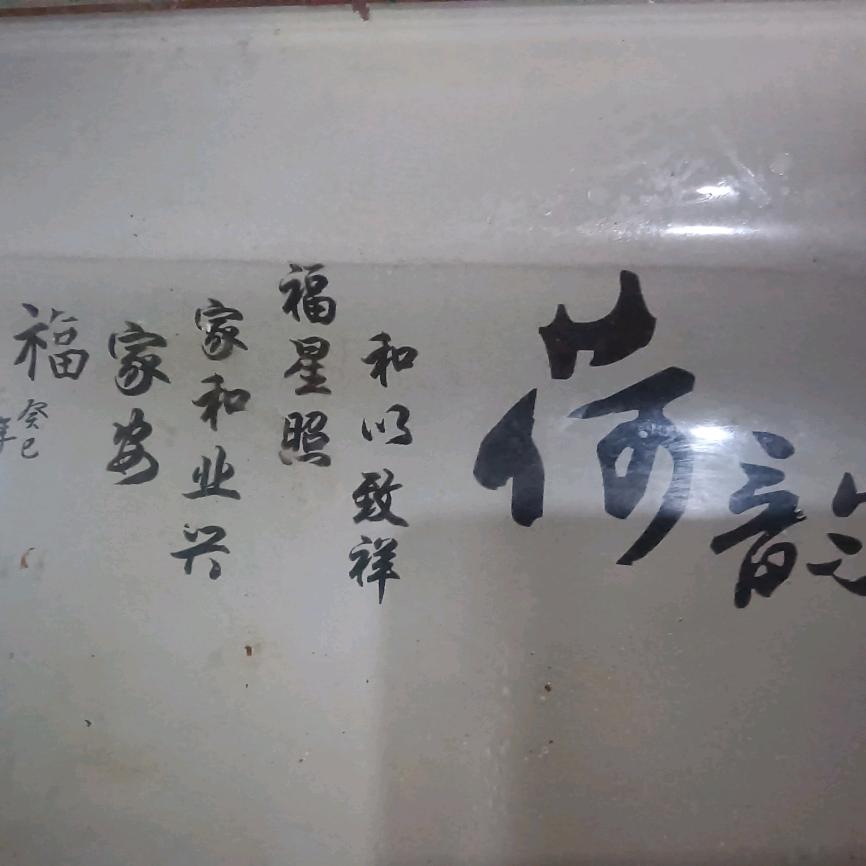 荷
和以致祥
福星照
家和业兴
家安
福
癸巳
年